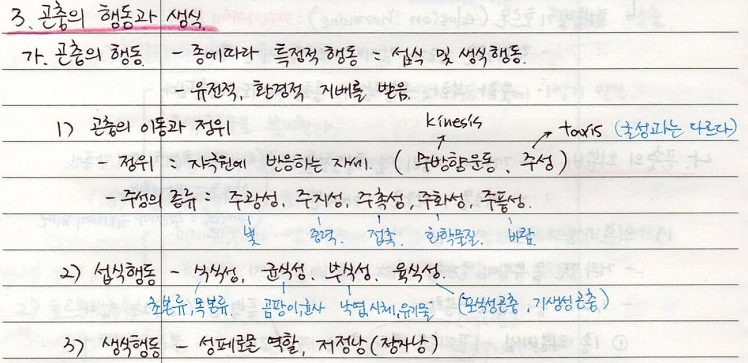 3. 곤충의 행동과 생식.
가. 곤충의 행동 - 종에따라 특정적 행동 = 섭식 및 생식행동.
- 유전적, 환경적 지배를 받음.
1) 곤충의 이동과 정위 kinesis taxis (굴성과는 다르다)
- 정위 = 자극원에 반응하는 자세. (무방향운동, 주성)
- 주성의 종류 = 주광성, 주지성, 주촉성, 주화성, 주풍성.
빛 중력. 접촉. 화학물질. 바람.
2) 섭식행동 - 식식성, 균식성. 부식성. 육식성.
초본류, 목본류 곰팡이, 효모 낙엽, 시체, 유기물 (포식성곤충, 기생성곤충)
3) 생식행동 - 성페로몬 역할, 저정낭 (정자낭)